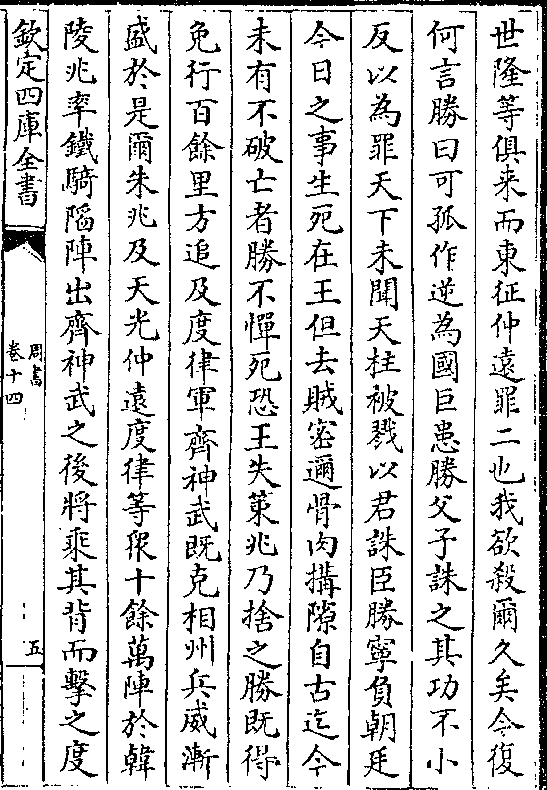 世隆等俱来而東征仲遠罪二也我欲殺爾久矣今復
何言勝曰可孤作逆為國巨患勝父子誅之其功不小
反以為罪天下未聞天柱被戮以君誅臣勝寧負朝廷
今日之事生死在王但去賊密邇骨肉搆隙自古迄今
未有不破亡者勝不憚死恐王失策兆乃捨之勝既得
免行百餘里方追及度律軍齊神武既克相州兵威漸
盛於是爾朱兆及天光仲遠度律等衆十餘萬陣於韓
陵兆率鐵騎陷陣出齊神武之後將乘其背而擊之度
欽定四庫全書
周書
卷十四
五